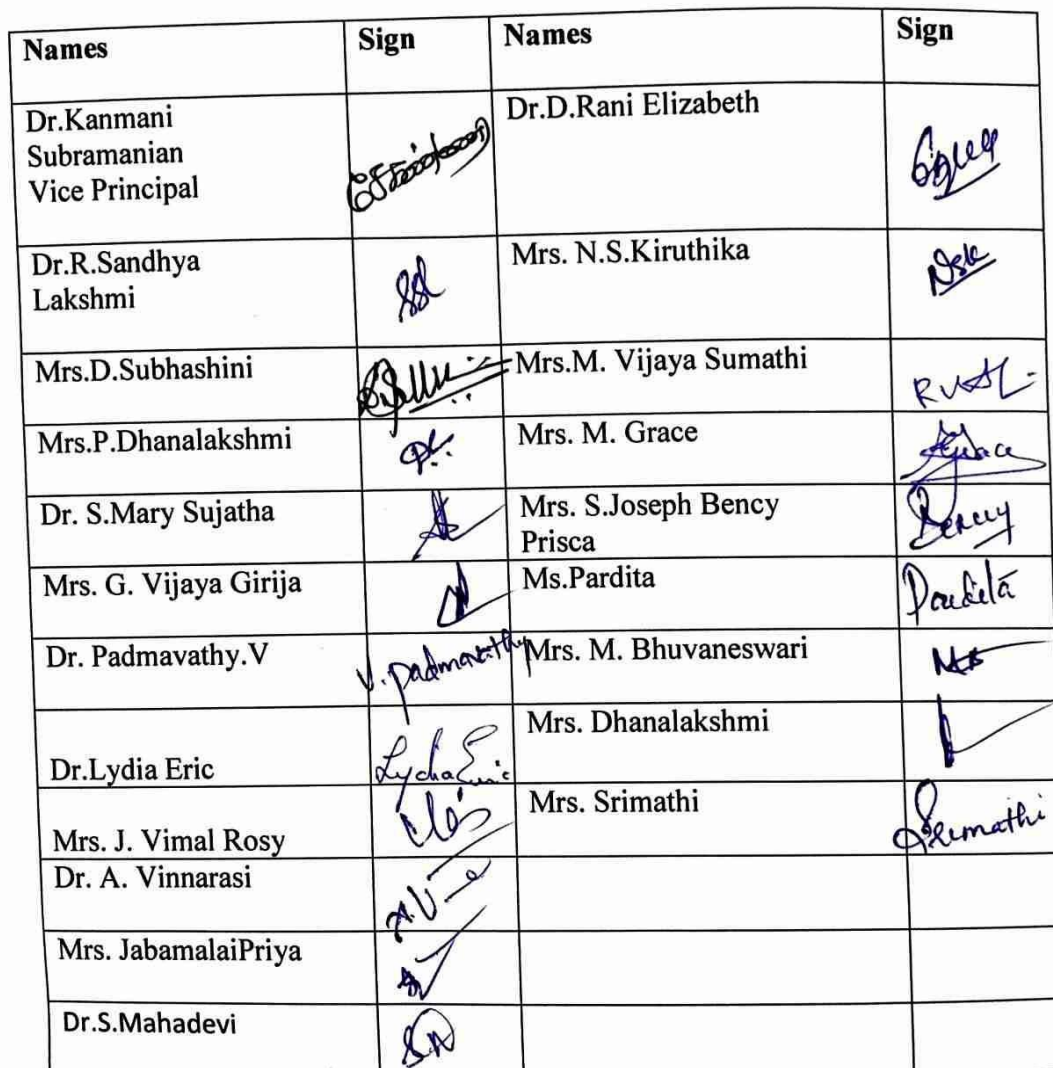 Names Sign Names Sign
Dr.Kanmani
Subramanian
Vice Principal
Dr.D.Rani Elizabeth
Dr.R.Sandhya
Lakshmi
Mrs. N.S.Kiruthika
Nsk
Mrs.D.Subhashini
Mrs.M. Vijaya Sumathi
Mrs.P.Dhanalakshmi
Mrs. M. Grace
Dr. S.Mary Sujatha
Mrs. S.Joseph Bency
Prisca
Bency
Mrs. G. Vijaya Girija
Ms.Pardita
Pardita
Dr. Padmavathy.V
V. Padmavathy
Mrs. M. Bhuvaneswari
Dr.Lydia Eric
Lydia Eric
Mrs. Dhanalakshmi
Mrs. J. Vimal Rosy
Mrs. Srimathi
Srimathi
Dr. A. Vinnarasi
Mrs. JabamalaiPriya
Dr.S.Mahadevi